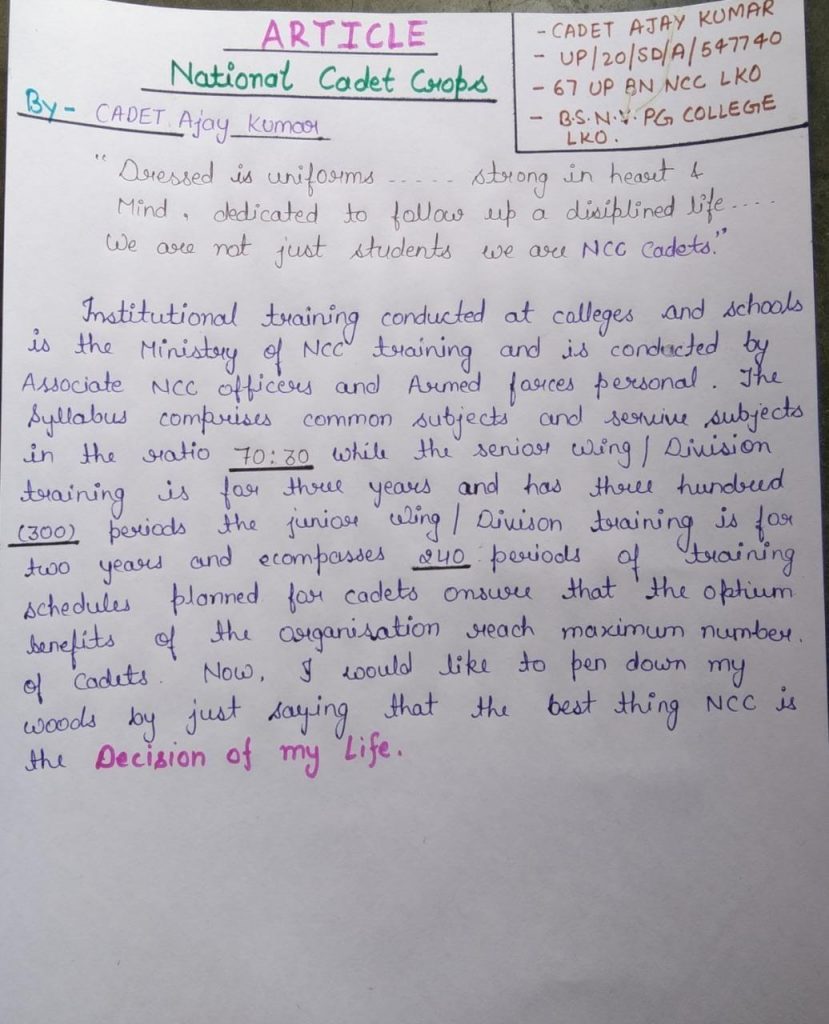 ARTICLE
National Cadet Crops
By - CADET Ajay Kumar
- CADET AJAY KUMAR
- UP/20/SD/A/547740
- 67 UP BN NCC LKO
- B.S.N.V. PG COLLEGE
LKO.
"Dressed is uniforms ..... strong in heart &
Mind, dedicated to follow up a disiplined life....
We are not just students we are NCC Cadets."
Institutional training conducted at colleges and schools
is the Ministry of NCC training and is conducted by
Associate NCC officers and Armed forces personal. The
Syllabus comprises common subjects and servive subjects
in the ratio 70:30 while the senior wing/Division
training is for three years and has three hundred
(300) periods the junior wing/Divison training is for
two years and ecompasses 240 periods of training
schedules planned for cadets onsure that the optium
benefits of the organisation reach maximum number.
of Cadets. Now, I would like to pen down my
woods by just saying that the best thing NCC is
the Decision of my Life.